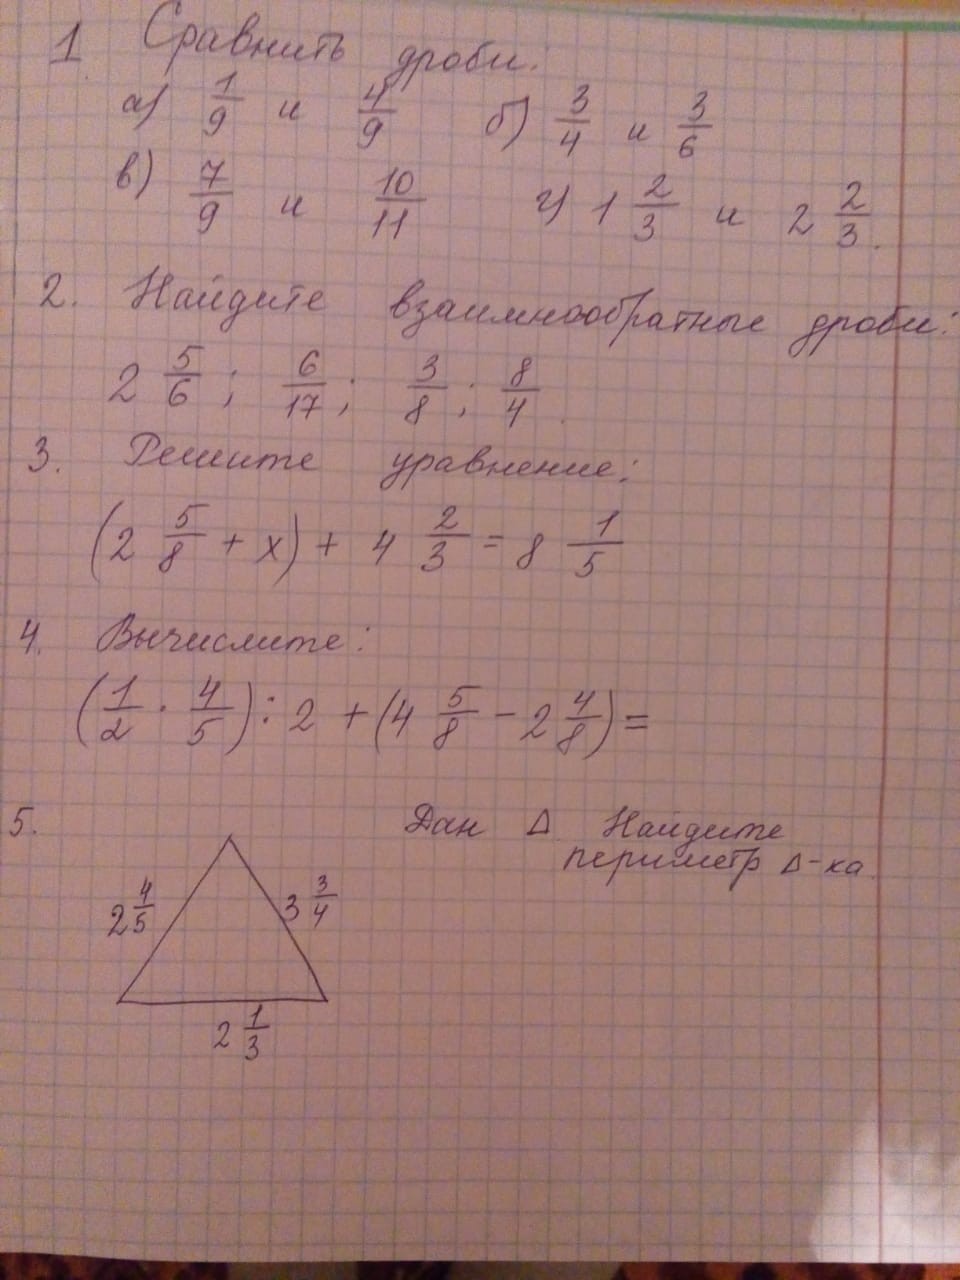 1. Сравнить дроби:
а) 1/9 и 4/9 б) 3/4 и 3/6
в) 7/9 и 10/11 г) 1 2/3 и 2 2/3.
2. Найдите взаимнообратные дроби:
2 5/6; 6/17; 3/8; 8/4.
3. Решите уравнение:
(2 5/8 + x) + 4 2/3 = 8 1/5
4. Вычислите:
(1/2 · 4/5) : 2 + (4 5/8 - 2 4/8) =
5. Дан Δ Найдите
периметр Δ-ка
2 4/5 3 3/4
2 1/3